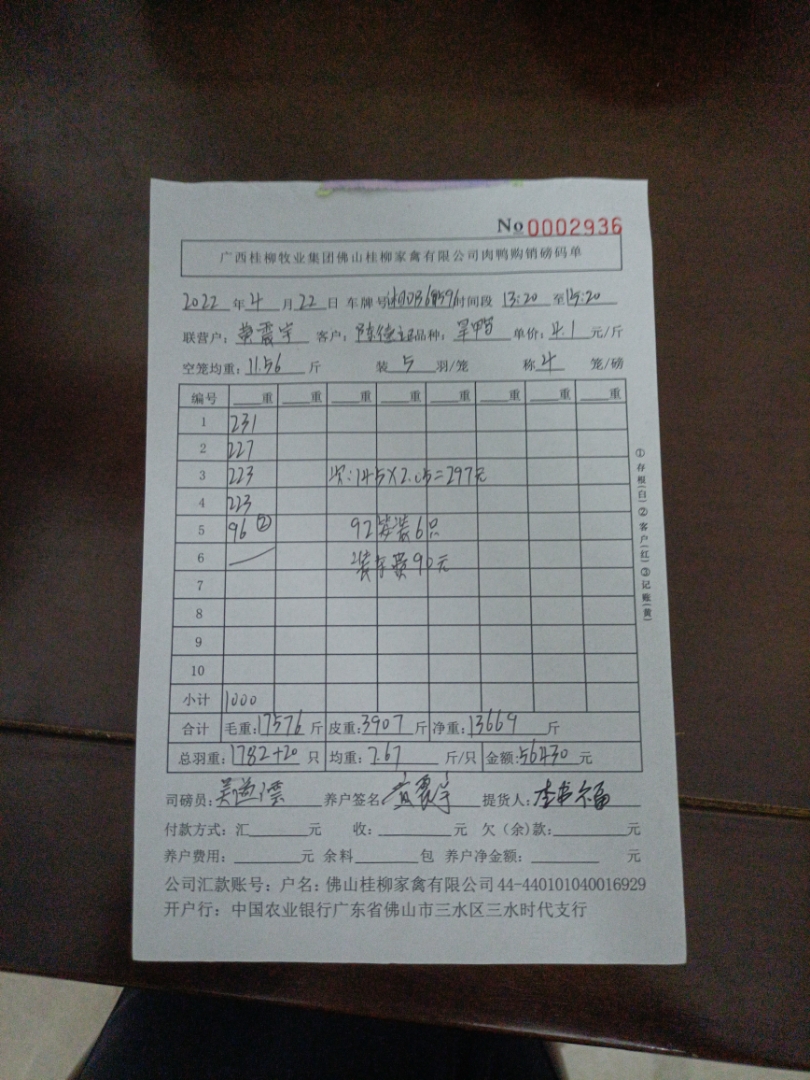 No 0002936
广西桂柳牧业集团佛山桂柳家禽有限公司肉鸭购销磅码单
2022 年 4 月 22 日 车牌号 时间段 13:20 至 15:20
联营户: 黄震宇 客户: 品种: 单价: 4.1 元/斤
空笼均重: 11.56 斤 装 5 羽/笼 称 4 笼/磅
编号 重 重 重 重 重 重 重 重
1 231
2 227
3 223 次:145×2.05=297元
4 223
5 96 ② 92笼装6只
6 装车费90元
7
8
9
10
小计 1000
合计 毛重: 17576 斤 皮重: 3907 斤 净重: 13669 斤
总羽重: 1782+20 只 均重: 7.67 斤/只 金额: 56430 元
司磅员: 养户签名: 黄震宇 提货人:
付款方式: 汇 元 收: 元 欠(余)款: 元
养户费用: 元 余料 包 养户净金额: 元
公司汇款账号: 户名: 佛山桂柳家禽有限公司 44-440101040016929
开户行: 中国农业银行广东省佛山市三水区三水时代支行
①存根(白)②客户(红)③记账(黄)